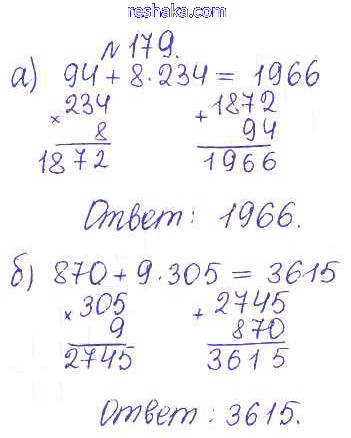 reshaka.com
№179.
а) 94 + 8·234 = 1966
× 234 + 1872
8 94
1872 1966
Ответ: 1966.
б) 870 + 9·305 = 3615
× 305 + 2745
9 870
2745 3615
Ответ: 3615.